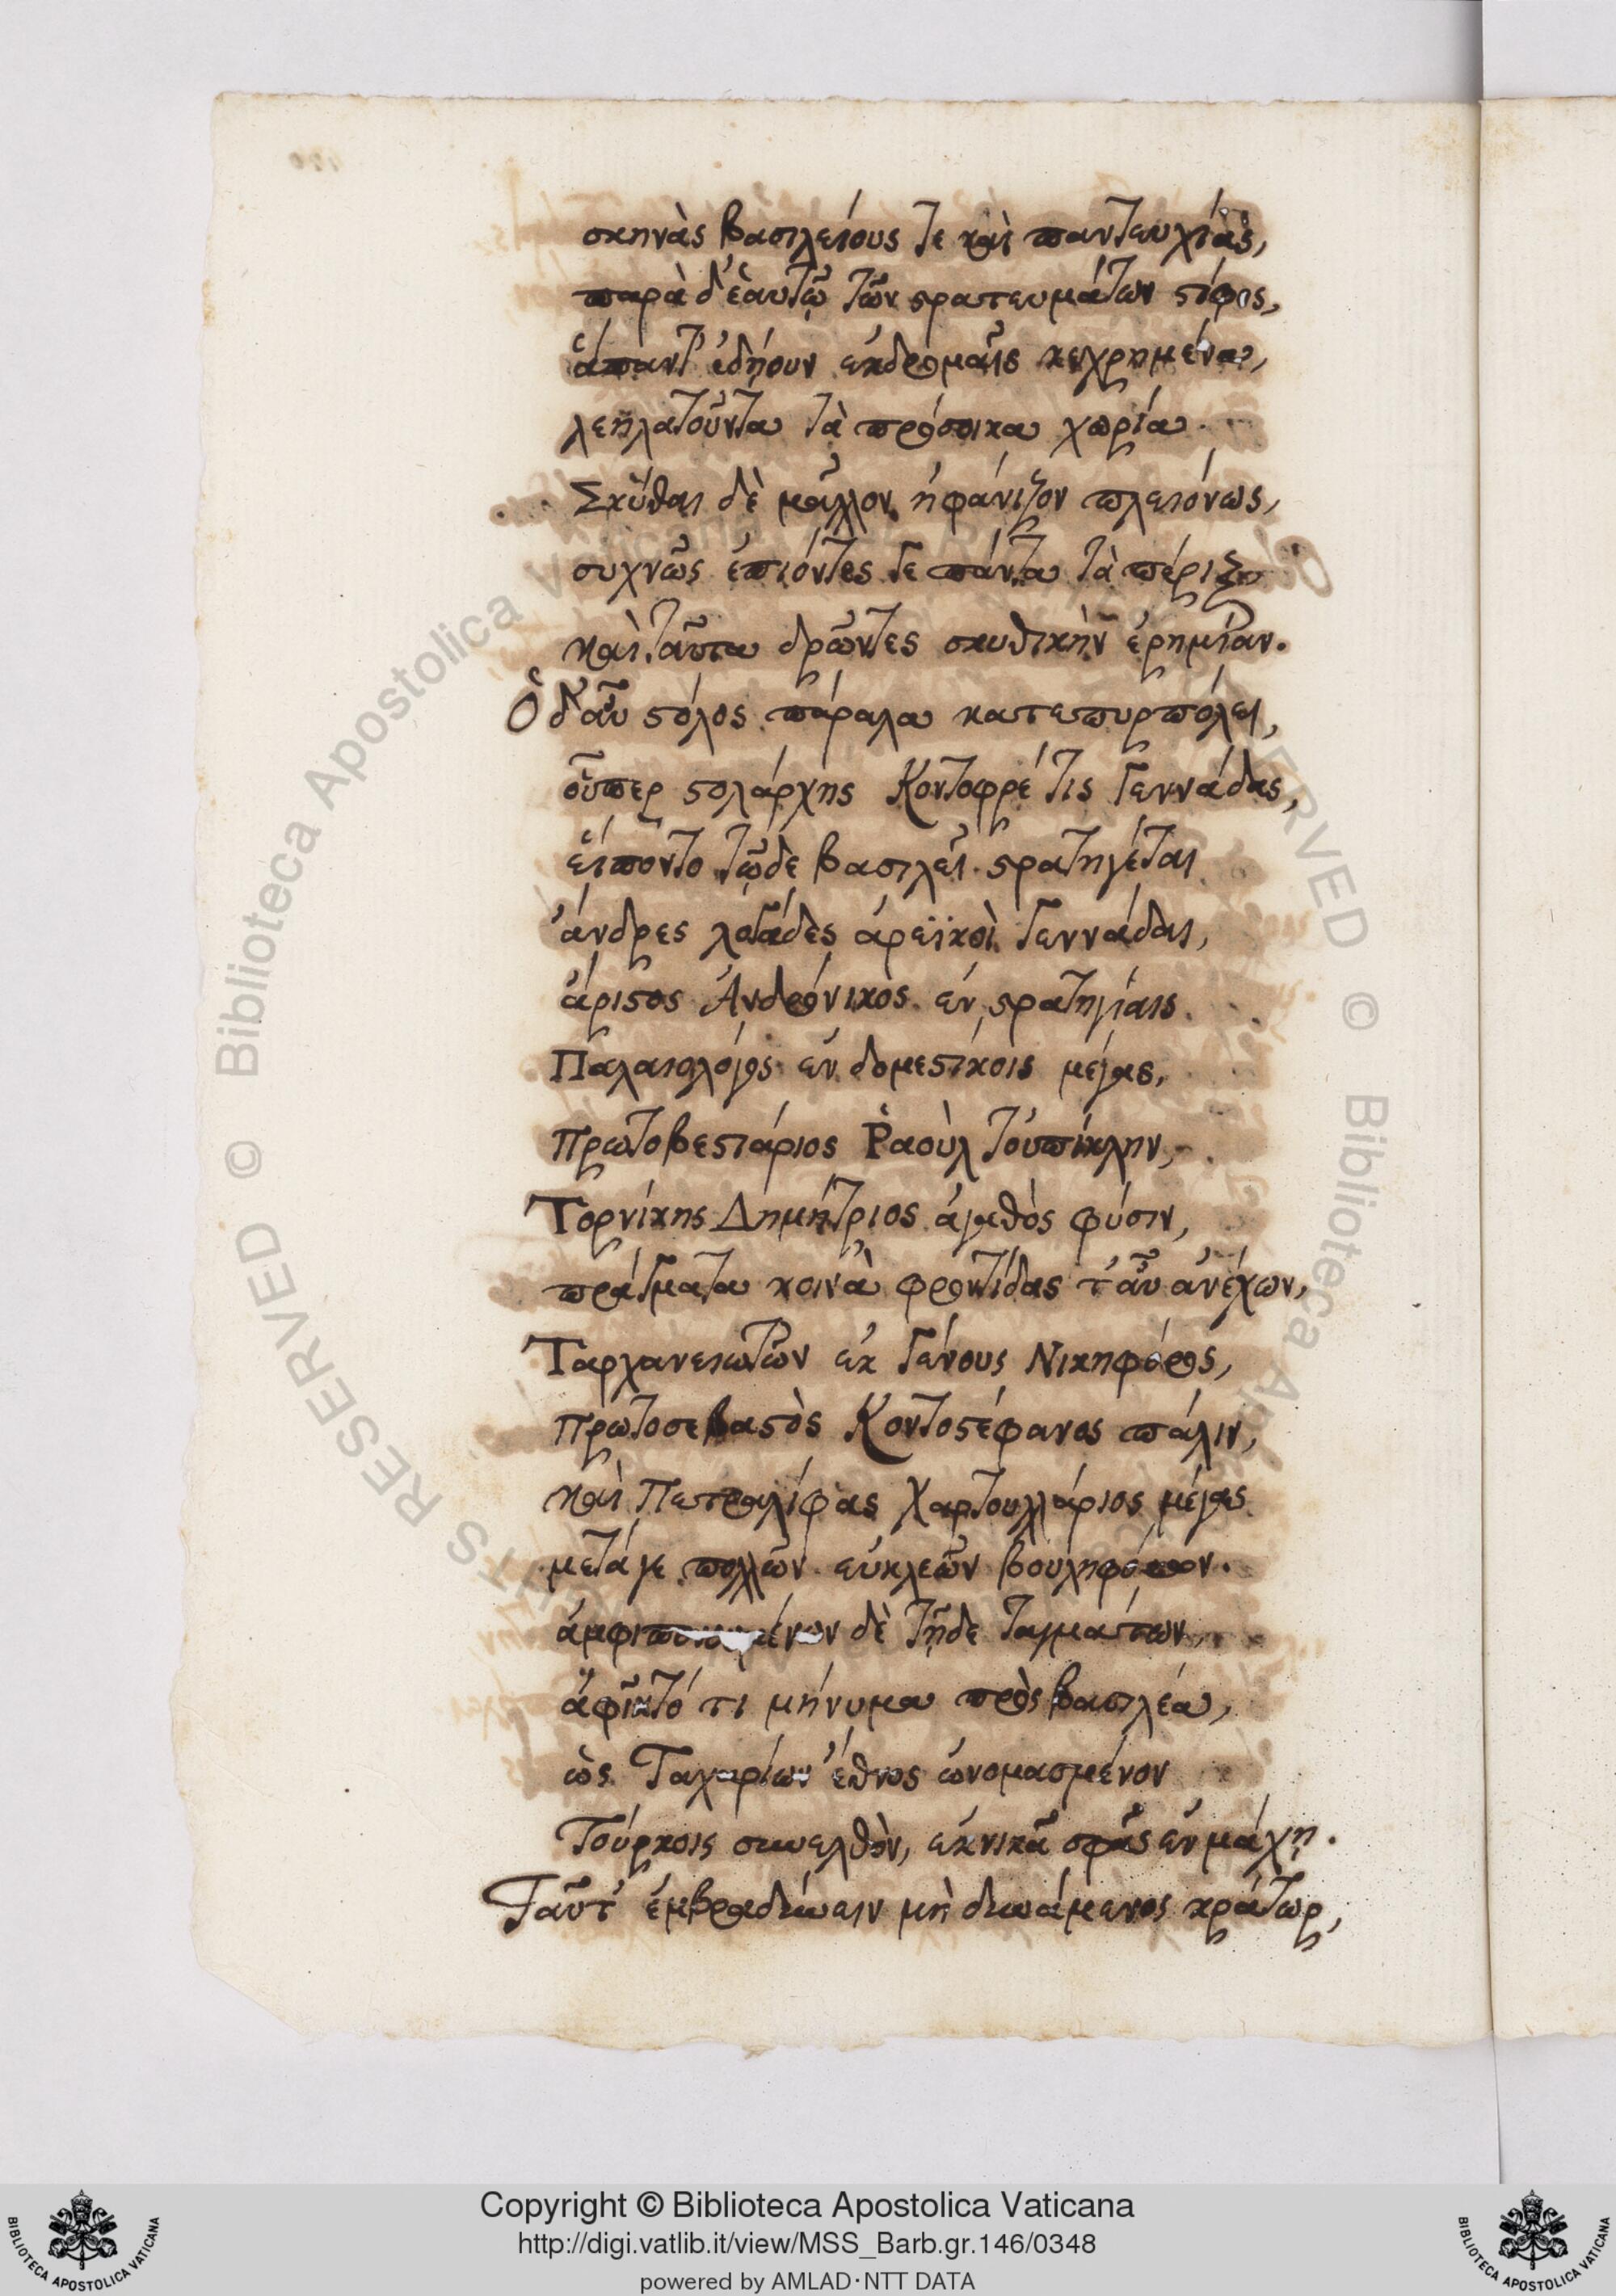 σκηνὰς βασιλείους τε καὶ παντευχίας,
παρὰ δ' ἑαυτῷ τῶν στρατευμάτων στίφος,
ἅπαντ' ἐδήουν ἐκδρομαῖς κεχρημένα,
λεηλατοῦντα τὰ πρόσοικα χωρία.
Σκύθαι δὲ μᾶλλον ἠφάνιζον πλειόνως,
συχνῶς ἐπιόντες τε πάντα τὰ πέριξ
καὶ ταῦτα δρῶντες σκυθικὴν ἐρημίαν.
Ὁ δ' αὖ στόλος πάραλα κατεπυρπόλει,
οὗπερ στολάρχης Κοντοφρέ τις γεννάδας,
εἵποντο τῷδε βασιλεῖ στρατηγέται
ἄνδρες λογάδες ἀρεϊκοὶ γεννάδαι,
ἄριστος Ἀνδρόνικος ἐν στρατηγίαις
Παλαιολόγος ἐν δομεστίκοις μέγας,
Πρωτοβεστιάριος Ῥαοὺλ τοὐπίκλην,
Τορνίκης Δημήτριος ἀγαθὸς φύσιν,
πράγματα κοινὰ φροντίδας τ' αὖ ἀνέχων,
Ταρχανειωτῶν ἐκ γένους Νικηφόρος,
Πρωτοσεβαστὸς Κοντοστέφανος πάλιν,
καὶ Πετραλίφας Χαρτουλλάριος μέγας
μετά γε πολλῶν εὐκλεῶν βουληφόρων.
δὲ τῇδε ταγμάτων
ἀφῖκτό τι μήνυμα πρὸς βασιλέα,
ὡς Ταχαρίων ἔθνος ὠνομασμένον
Τούρκοις συνελθὸν, ἐκνικᾷ σφᾶς ἐν μάχῃ.
Ταῦτ' ἐμβραδύνειν μὴ δυνάμενος κράτωρ,
Copyright © Biblioteca Apostolica Vaticana
http://digi.vatlib.it/view/MSS_Barb.gr.146/0348
powered by AMLAD·NTT DATA